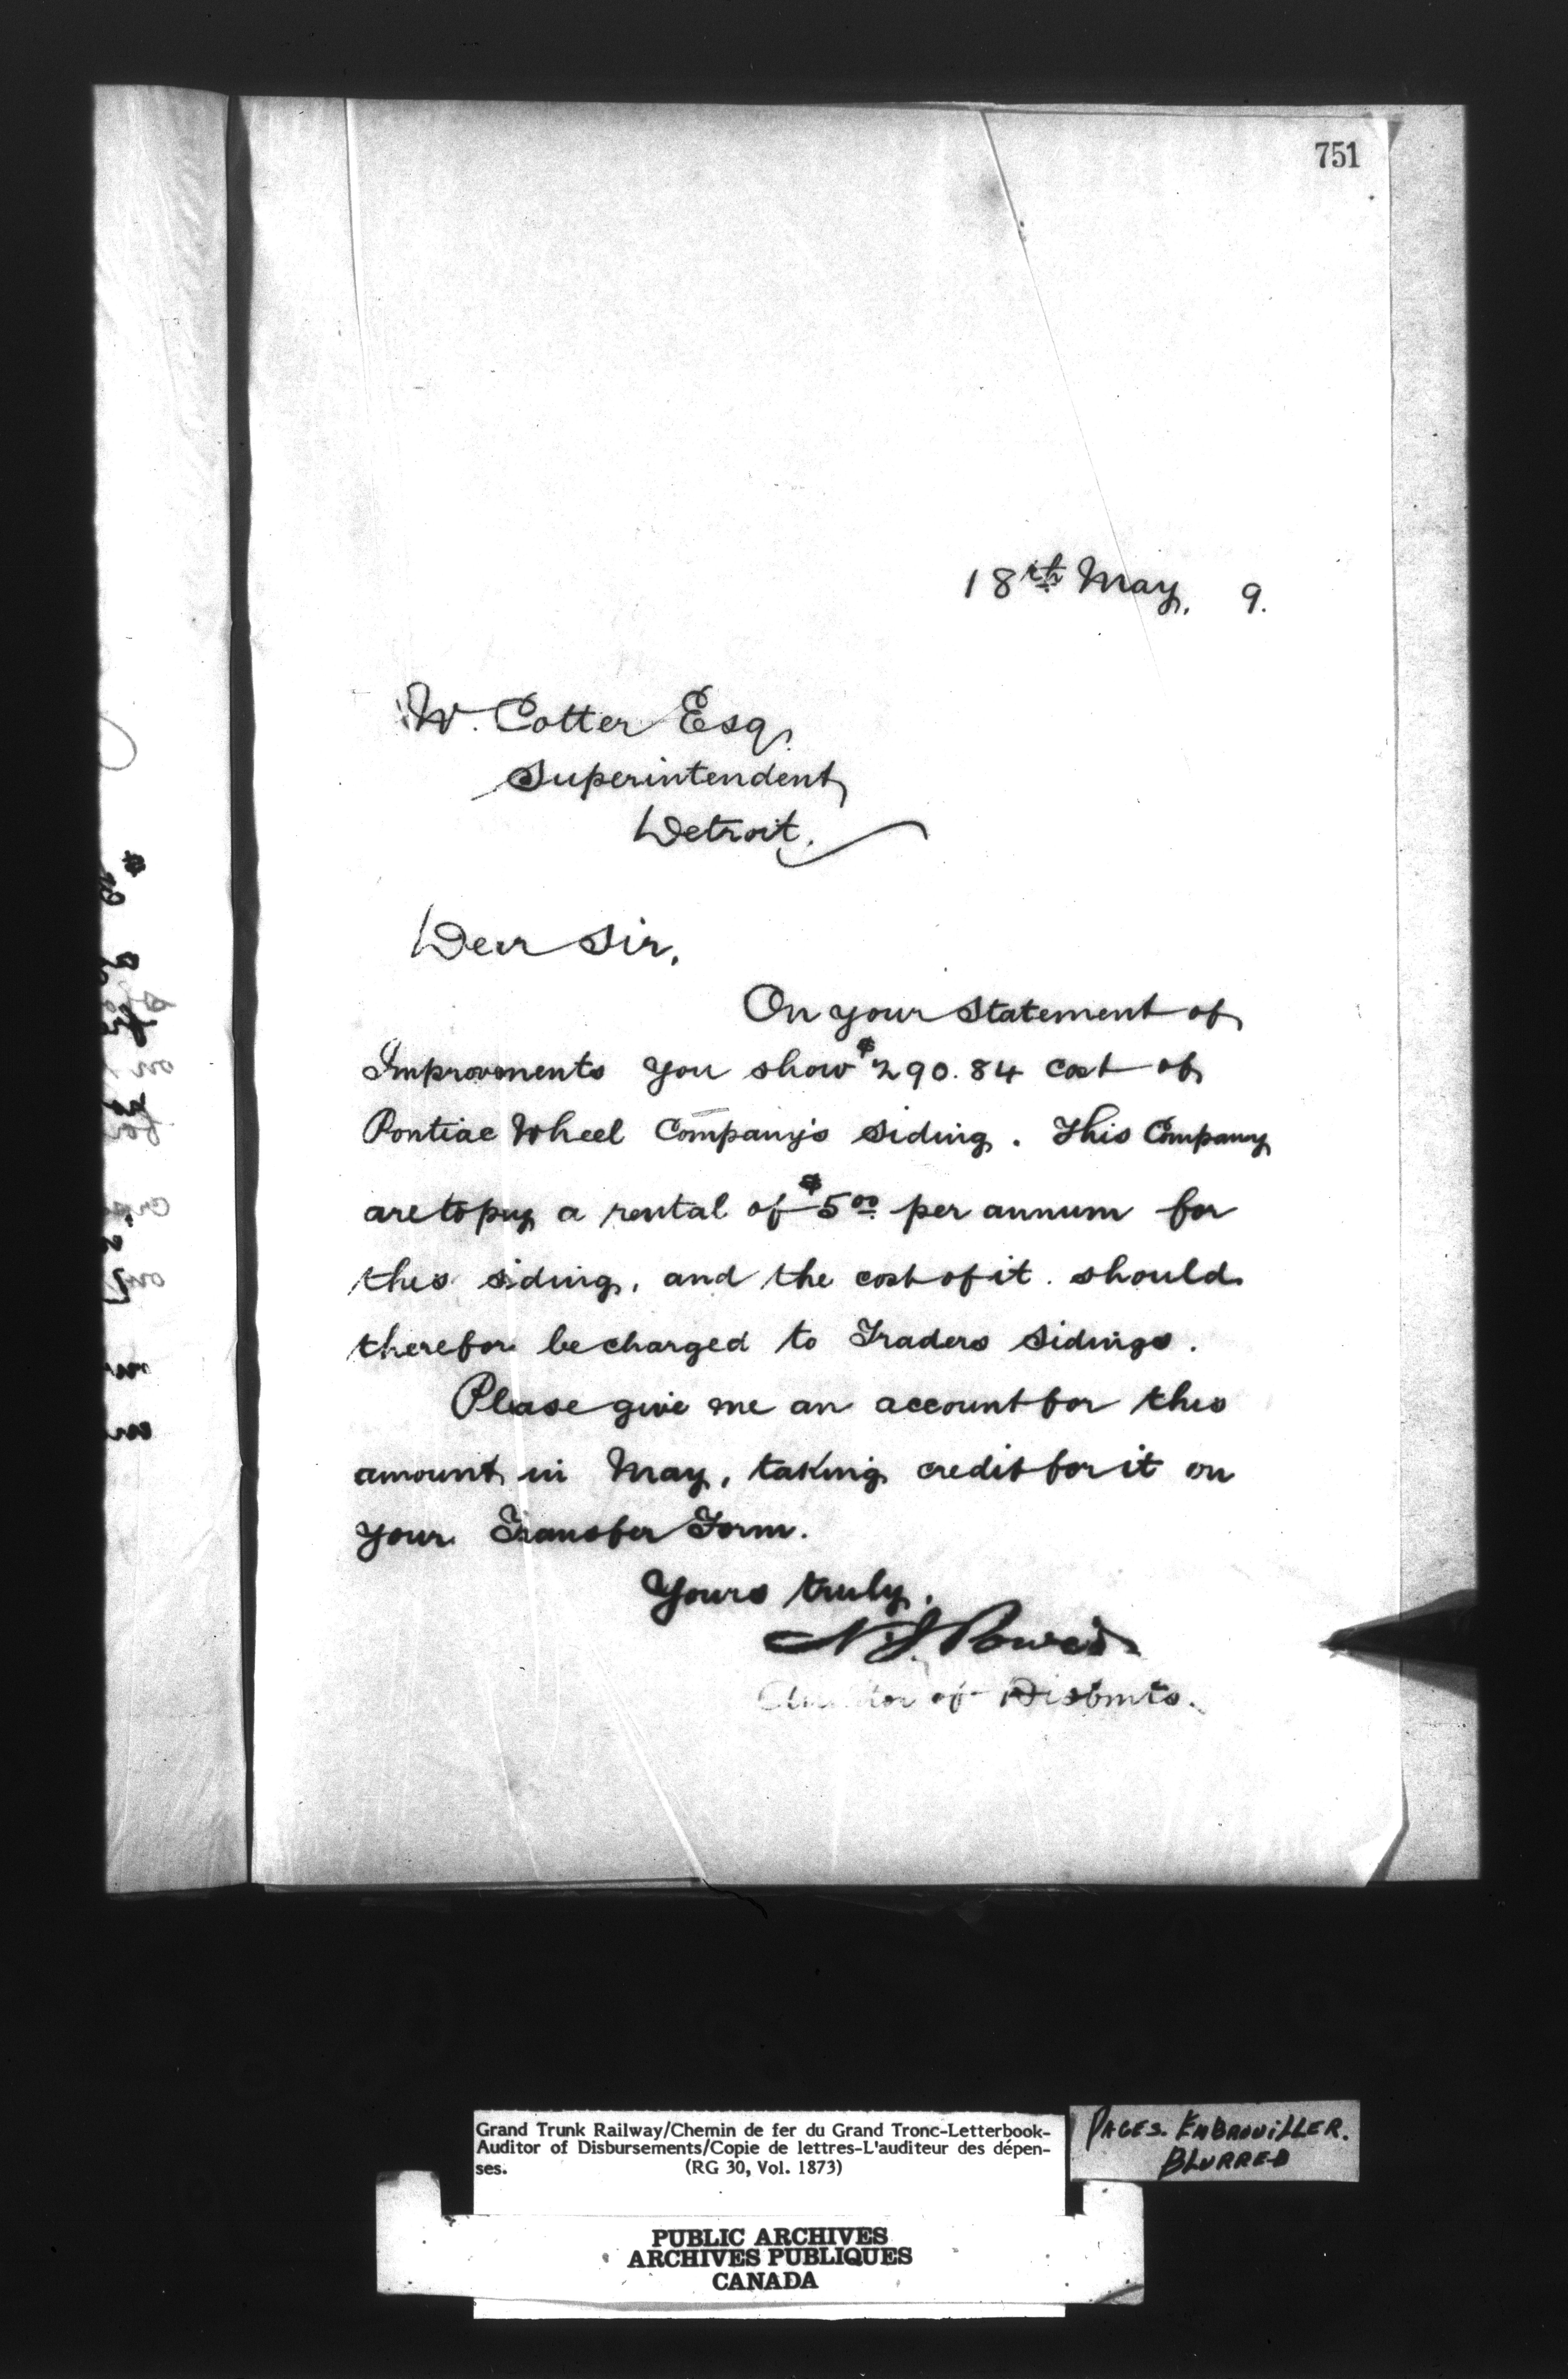 751
18th May, 9.
W. Cotter Esq.
Superintendent,
Detroit.
Dear Sir,
On your Statement of
Improvements you show $290.84 cost of
Pontiac Wheel Company's siding. This Company
are to pay a rental of $5.00 per annum for
this siding, and the cost of it should
therefore be charged to Traders Sidings.
Please give me an account for this
amount in May, taking credit for it on
your Transfer Form.
Yours truly,
N J Power
Auditor of Disbmts.
Grand Trunk Railway/Chemin de fer du Grand Tronc-Letterbook-
Auditor of Disbursements/Copie de lettres-L'auditeur des dépen-
ses. (RG 30, Vol. 1873)
PAGES. EMBROUILLER.
BLURRED
PUBLIC ARCHIVES
ARCHIVES PUBLIQUES
CANADA